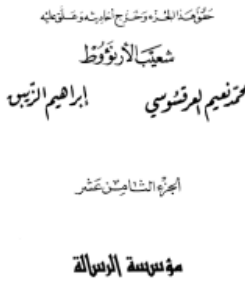 حَقَّقَ هَذَا الجُزْءَ وَخَرَّجَ أَحَادِيثَهُ وَعَلَّقَ عَلَيْهِ
شُعَيْب الأرنَؤُوط
محمد نعيم العرقسوسي إبراهيم الزيبق
الجُزْءُ الثَّامِنُ عَشَر
مؤسسة الرسالة